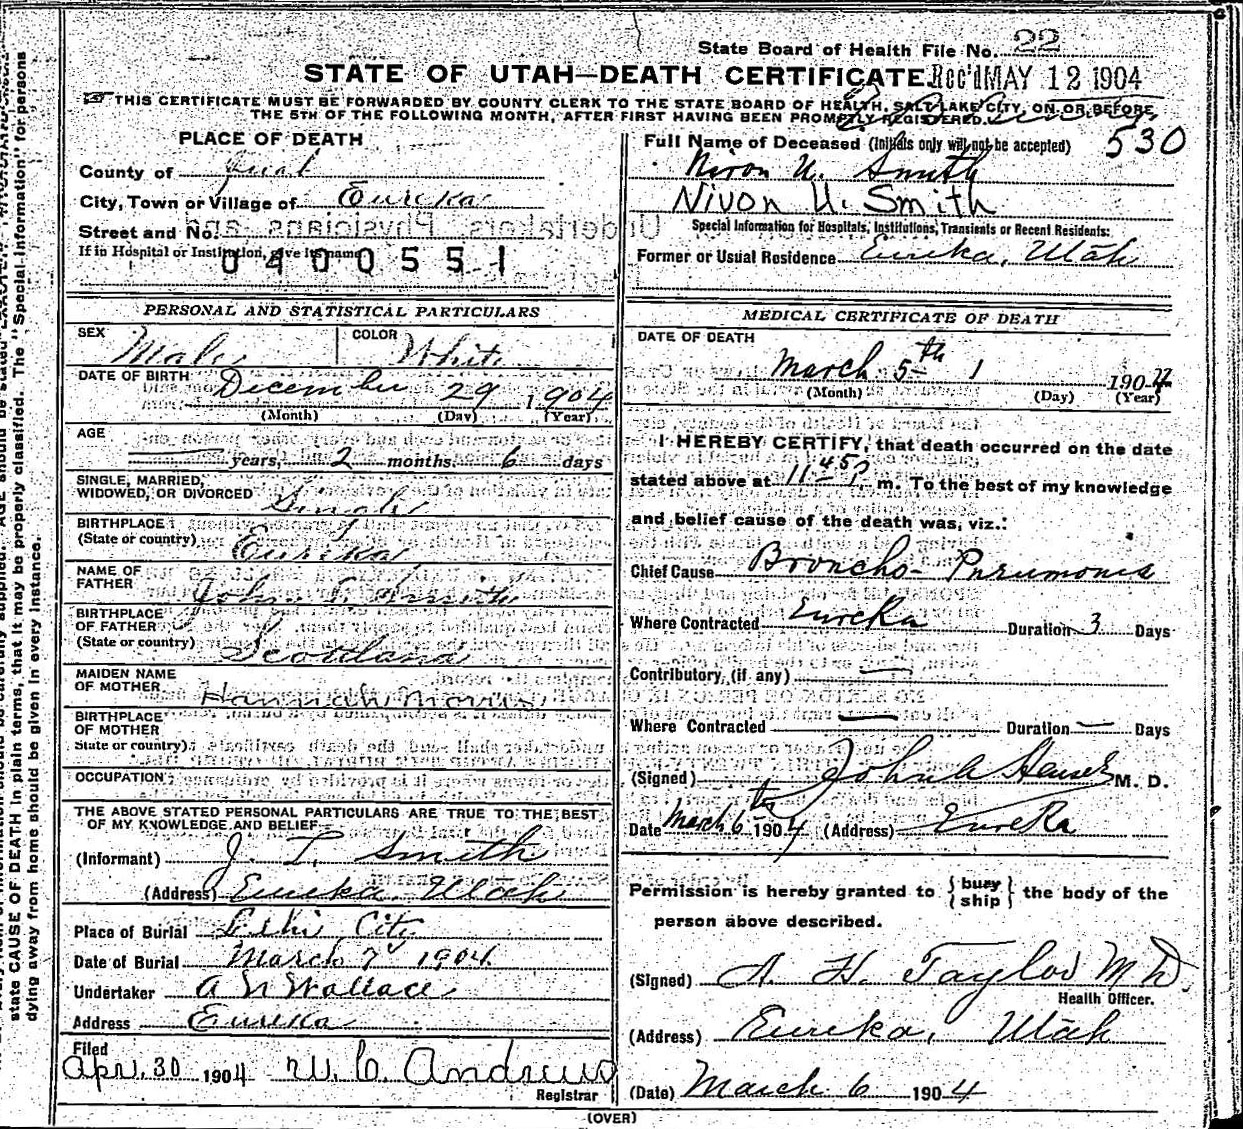 State Board of Health File No. 22
STATE OF UTAH—DEATH CERTIFICATE. Rec'd MAY 12 1904
THIS CERTIFICATE MUST BE FORWARDED BY COUNTY CLERK TO THE STATE BOARD OF HEALTH, SALT LAKE CITY, ON OR BEFORE
THE 5TH OF THE FOLLOWING MONTH, AFTER FIRST HAVING BEEN PROMPTLY REGISTERED.
530
PLACE OF DEATH
County of Juab
City, Town or Village of Eureka
Street and No.
If in Hospital or Institution, give its name
0400551
Full Name of Deceased (Initials only will not be accepted)
Nivon U. Smith
Nivon U. Smith
Special Information for Hospitals, Institutions, Transients or Recent Residents:
Former or Usual Residence Eureka, Utah
PERSONAL AND STATISTICAL PARTICULARS
SEX Male COLOR White
DATE OF BIRTH December 29 1904
(Month) (Day) (Year)
AGE — years, 2 months. 6 days
SINGLE, MARRIED,
WIDOWED, OR DIVORCED Single
BIRTHPLACE
(State or country) Eureka
NAME OF
FATHER John T. Smith
BIRTHPLACE
OF FATHER
(State or country) Scotland
MAIDEN NAME
OF MOTHER Hannah Morris
BIRTHPLACE
OF MOTHER
State or country)
OCCUPATION
THE ABOVE STATED PERSONAL PARTICULARS ARE TRUE TO THE BEST
OF MY KNOWLEDGE AND BELIEF
(Informant) J. T. Smith
(Address) Eureka, Utah
Place of Burial Lehi City
Date of Burial March 7 1904
Undertaker A N Wallace
Address Eureka
Filed
Apr. 30 1904 W. C. Andrews
Registrar
MEDICAL CERTIFICATE OF DEATH
DATE OF DEATH
March 5th 1904
(Month) (Day) (Year)
I HEREBY CERTIFY, that death occurred on the date
stated above at 11 45 P m. To the best of my knowledge
and belief cause of the death was, viz.:
Chief Cause Broncho-Pneumonia
Where Contracted Eureka Duration 3 Days
Contributory, (if any) —
Where Contracted — Duration — Days
(Signed) John A Hensel M. D.
Date March 6th 1904 (Address) Eureka
Permission is hereby granted to {bury ship} the body of the
person above described.
(Signed) A. H. Taylor M D.
Health Officer.
(Address) Eureka, Utah
(Date) March 6 1904
(OVER)
state CAUSE OF DEATH in plain terms, that it may be properly classified. The "Special Information" for persons
dying away from home should be given in every instance.